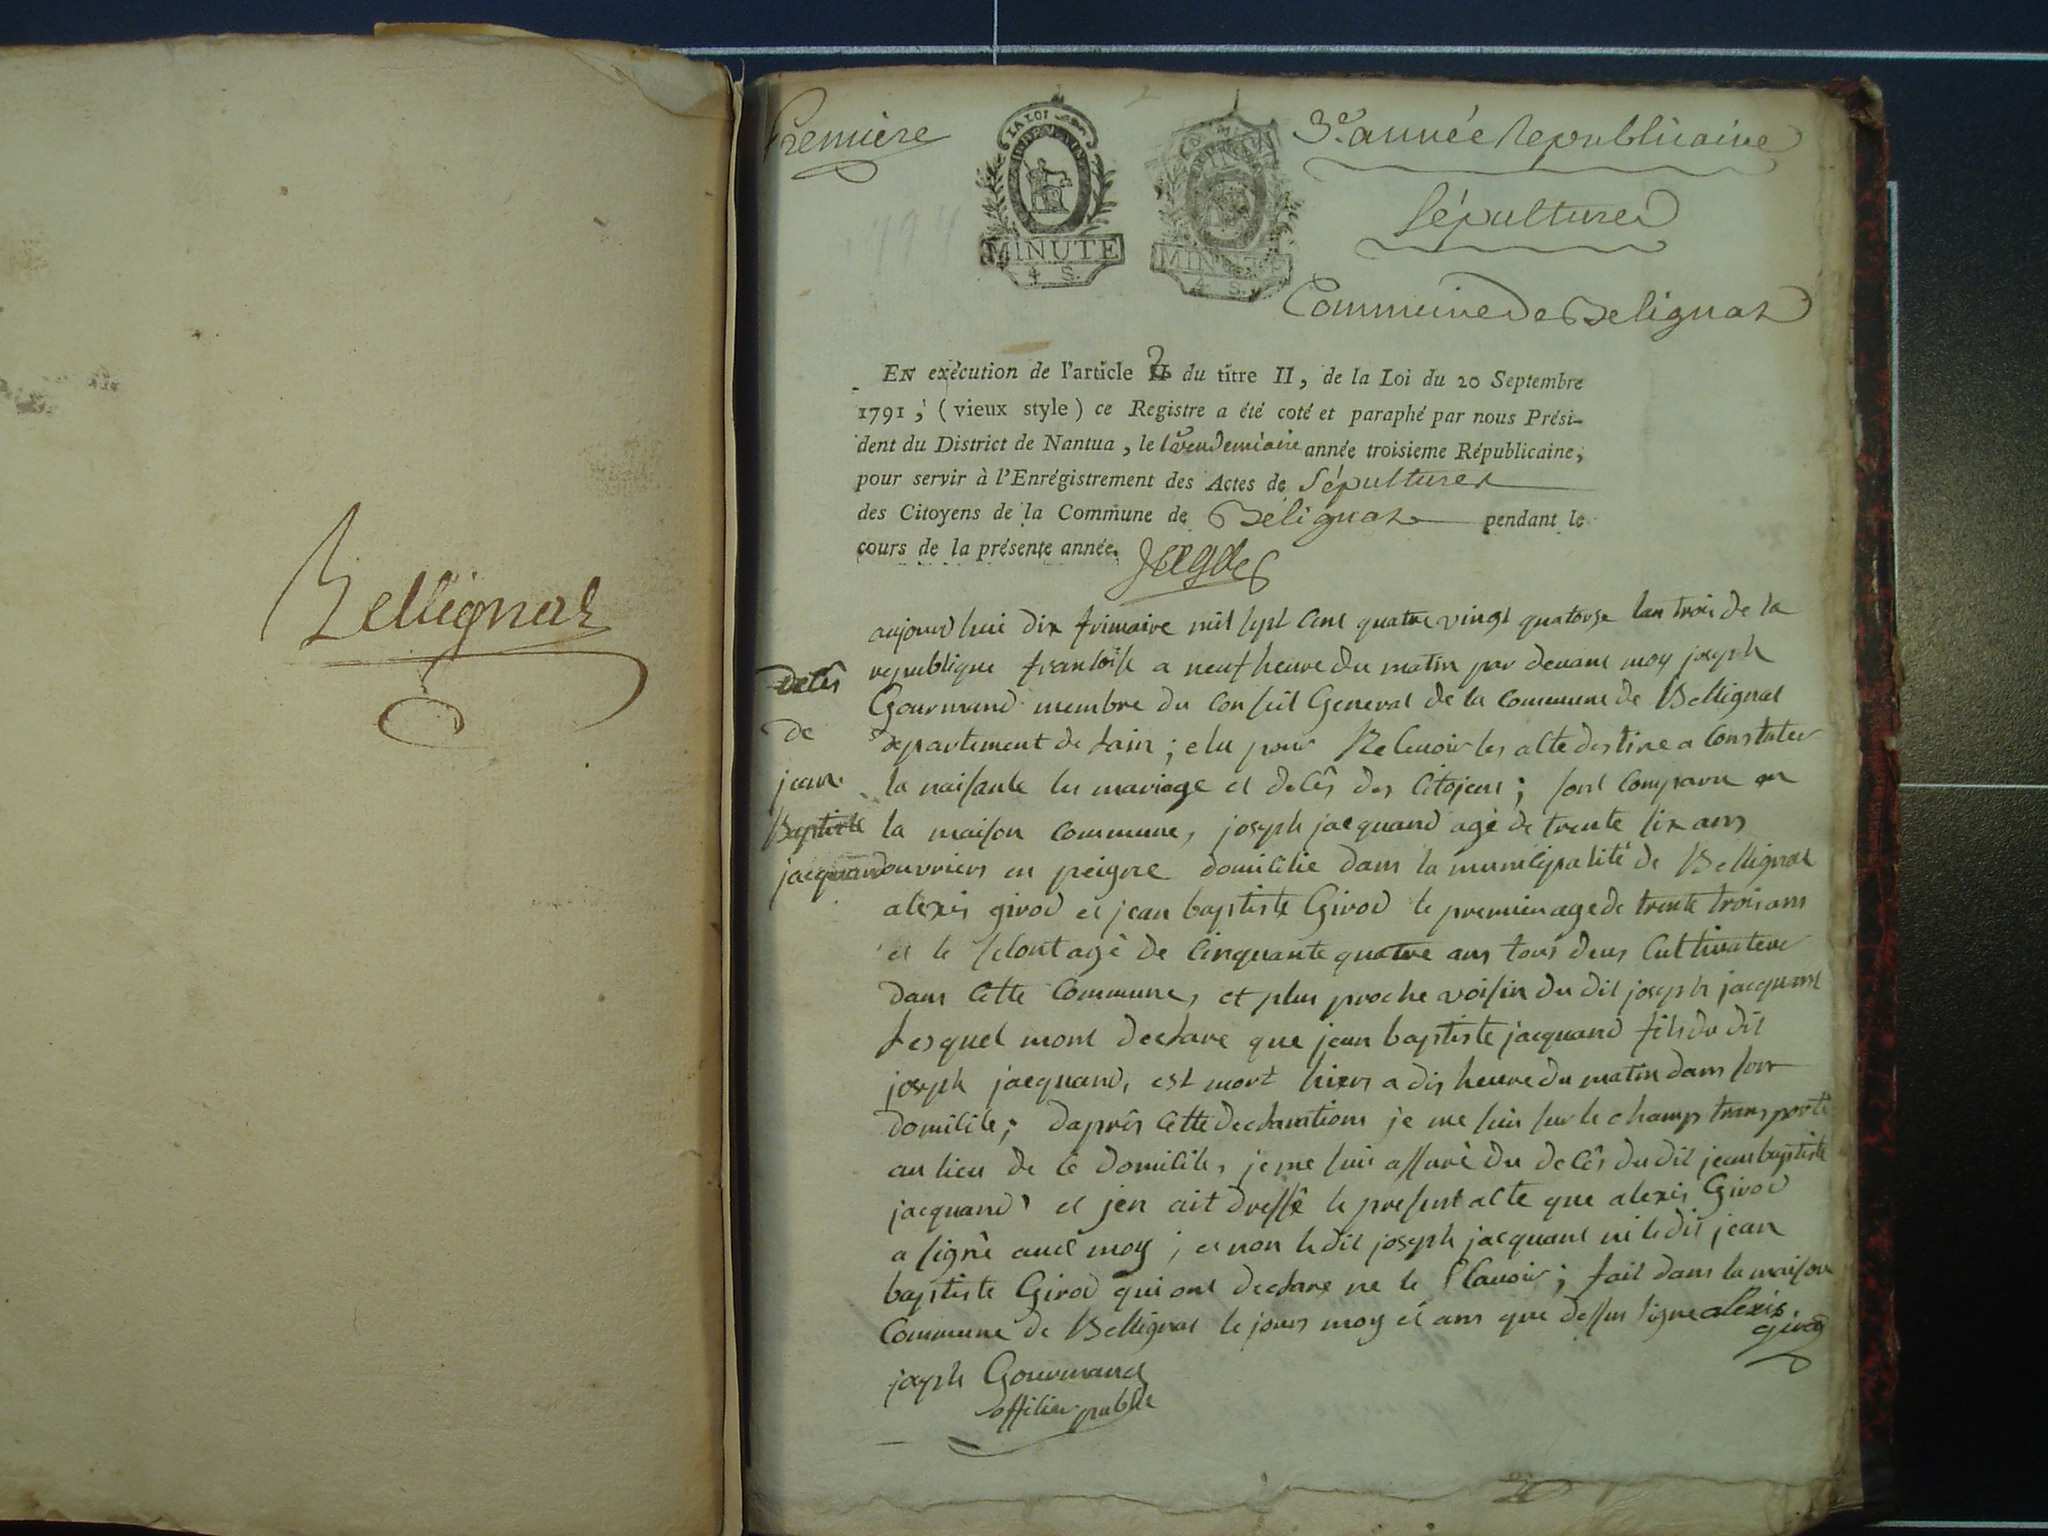 Bellignat
Premiere
LA LOI
MINUTE
4 S.
MINUTE
4 S.
3e. année republicaine
Sépultures
Commune de Belignat
EN exècution de l'article 2 du titre II, de la Loi du 20 Septembre
1791, (vieux style) ce Registre a été coté et paraphé par nous Prési-
dent du District de Nantua, le 1er vendemiaire année troisieme Républicaine,
pour servir à l'Enrégistrement des Actes de Sépultures
des Citoyens de la Commune de Bélignat pendant le
cours de la présente année.
aujourd huit dix frimaire mil sept cent quatre vingt quatorse lan trois de la
republique francoise a neuf heure du matin par devant moy joseph
Gourmand membre du conseil General de la commune de Bellignat
departement de lain; elu pour Recevoir les acte destine a constater
la naisance les mariage et decês des citojens; sont comparu en
la maison commune, joseph jacquand agé de trente six ans
ouvriers en peigne domicilie dans la municipalité de Bellignat
alexis girod et jean baptiste Girod le premier age de trente trois ans
et le second agé de cinquante quatre ans tous deus cultivateur
dans cette commune, et plus proche voisin du dit joseph jacquand
Lesquel mont declare que jean baptiste jacquand fils du dit
joseph jacquand, est mort hiers a dis heure du matin dans son
domicile; daprês cette declarations je me suis sur le champ transporté
au lieu de ce domicile, je me suis assuré du decês du dit jean baptiste
jacquand et jen ait dressé le present acte que alexis Girod
a signé avec moy; et non le dit joseph jacquand ni le dit jean
baptiste Girod qui ont declare ne le scavoir; fait dans la maison
commune de Bellignat le jours moy et ans que dessus signe alexis
girod
joseph Gourmand
officier public
decês
de
jean
Baptiste
jacquand